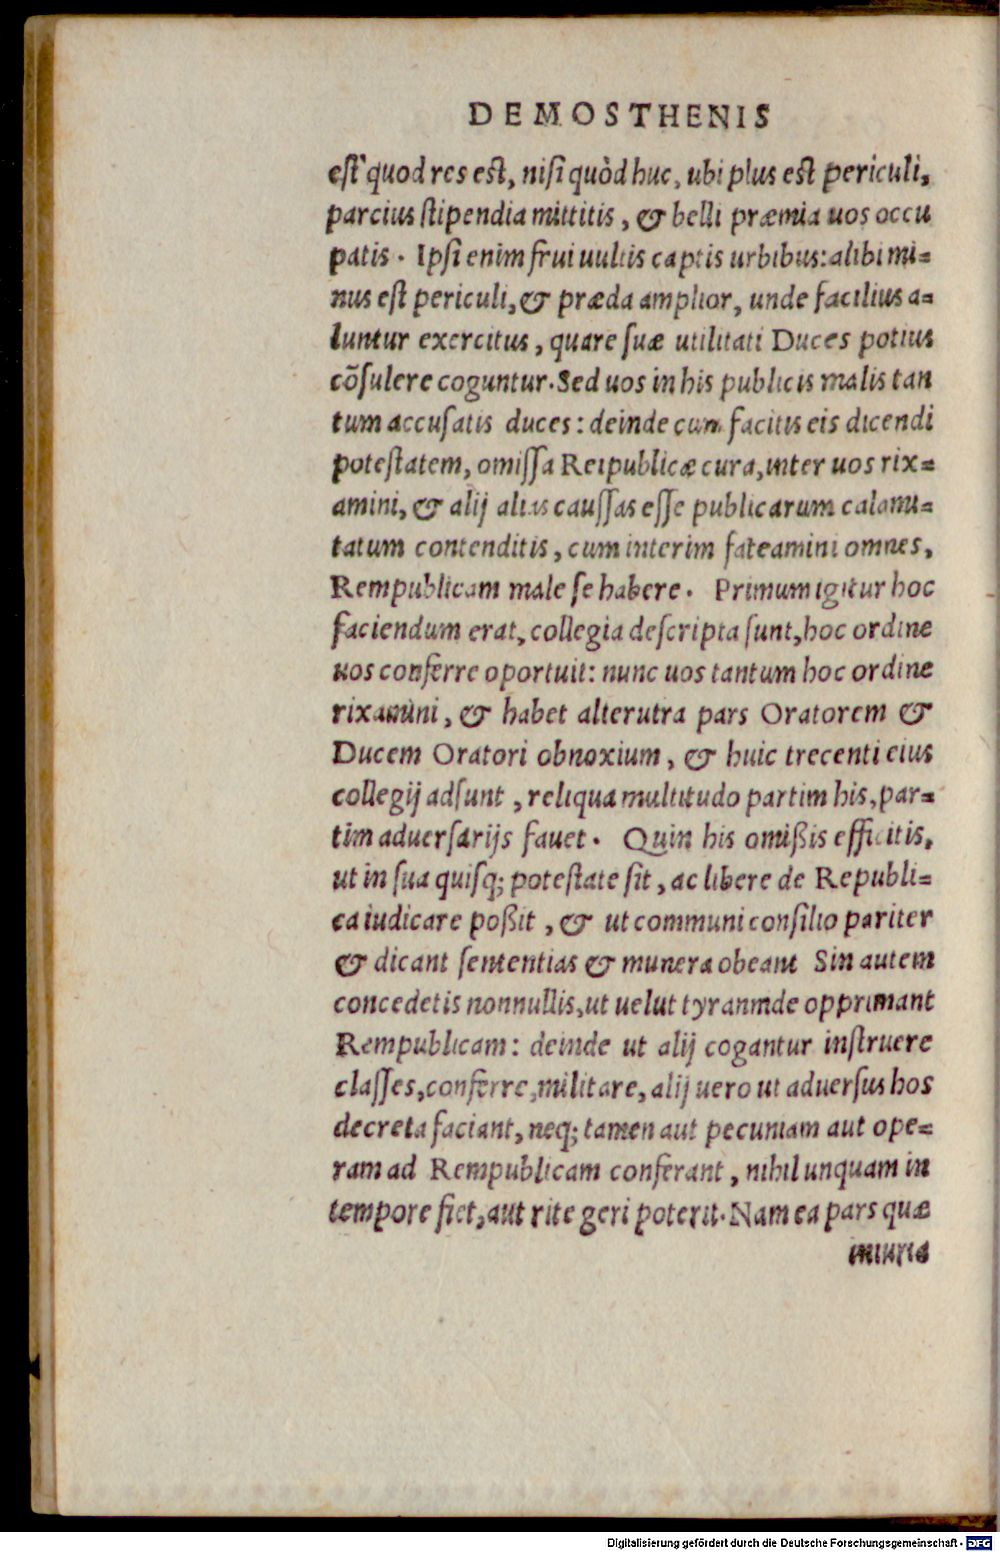 DEMOSTHENIS
est quod res est, nisi quòd huc, ubi plus est periculi,
parcius stipendia mittitis, & belli præmia uos occu
patis. Ipsi enim frui uultis captis urbibus: alibi mi-
nus est periculi, & præda amplior, unde facilius a-
luntur exercitus, quare suæ utilitati Duces potius
cõsulere coguntur. Sed uos in his publicis malis tan
tum accusatis duces: deinde cum facitis eis dicendi
potestatem, omissa Reipublicæ cura, inter uos rix-
amini, & alij alias caussas esse publicarum calami-
tatum contenditis, cum interim fateamini omnes,
Rempublicam male se habere. Primum igitur hoc
faciendum erat, collegia descripta sunt, hoc ordine
uos conferre oportuit: nunc uos tantum hoc ordine
rixamini, & habet alterutra pars Oratorem &
Ducem Oratori obnoxium, & huic trecenti eius
collegij adsunt, reliqua multitudo partim his, par-
tim aduersarijs fauet. Quin his omißis efficitis,
ut in sua quisq; potestate sit, ac libere de Republi-
ca iudicare poßit, & ut communi consilio pariter
& dicant sententias & munera obeant Sin autem
concedetis nonnullis, ut uelut tyrannide opprimant
Rempublicam: deinde ut alij cogantur instruere
classes, conferre, militare, alij uero ut aduersus hos
decreta faciant, neq; tamen aut pecuniam aut ope-
ram ad Rempublicam conferant, nihil unquam in
tempore fiet, aut rite geri poterit. Nam ea pars quæ
iniuria
Digitalisierung gefördert durch die Deutsche Forschungsgemeinschaft - DFG